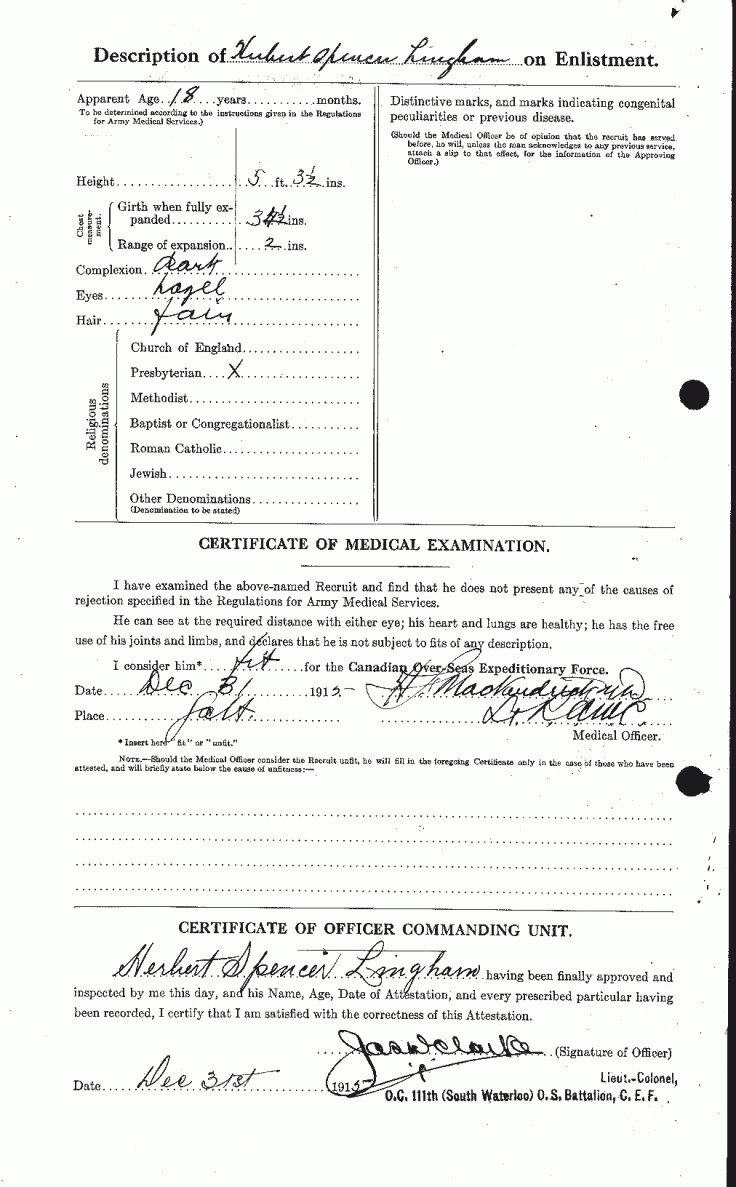 Description of Herbert Spencer Lingham on Enlistment.
Apparent Age 18 years months.
To be determined according to the instructions given in the Regulations
for Army Medical Services.)
Height 5 ft. 3½ ins.
Chest measurement.
Girth when fully ex-
panded ins.
Range of expansion 2 ins.
Complexion dark
Eyes hazel
Hair fair
Religious denominations
Church of England
Presbyterian X
Methodist
Baptist or Congregationalist
Roman Catholic
Jewish
Other Denominations
(Denomination to be stated)
Distinctive marks, and marks indicating congenital
peculiarities or previous disease.
(Should the Medical Officer be of opinion that the recruit has served
before, he will, unless the man acknowledges to any previous service,
attach a slip to that effect, for the information of the Approving
Officer.)
CERTIFICATE OF MEDICAL EXAMINATION.
I have examined the above-named Recruit and find that he does not present any of the causes of
rejection specified in the Regulations for Army Medical Services.
He can see at the required distance with either eye; his heart and lungs are healthy; he has the free
use of his joints and limbs, and declares that he is not subject to fits of any description.
I consider him* fit for the Canadian Over-Seas Expeditionary Force.
Date Dec 31 1915
Place Galt.
Medical Officer.
* Insert here "fit" or "unfit."
NOTE.—Should the Medical Officer consider the Recruit unfit, he will fill in the foregoing Certificate only in the case of those who have been
attested, and will briefly state below the cause of unfitness:—
CERTIFICATE OF OFFICER COMMANDING UNIT.
Herbert Spencer Lingham having been finally approved and
inspected by me this day, and his Name, Age, Date of Attestation, and every prescribed particular having
been recorded, I certify that I am satisfied with the correctness of this Attestation.
Jas W. Clarke (Signature of Officer)
Date Dec 31st 1915
Lieut.-Colonel,
O.C. 111th (South Waterloo) O.S. Battalion, C. E. F.